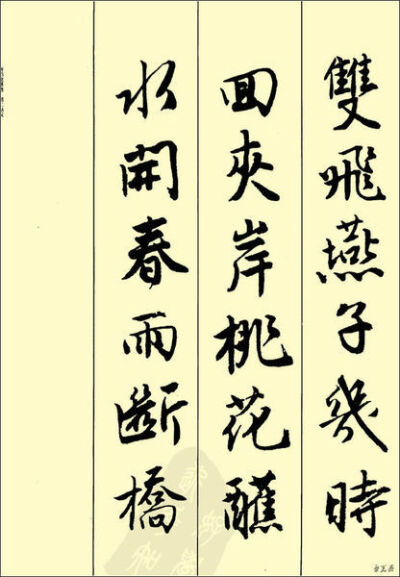 雙飛燕子幾時
回夾岸桃花蘸
水開春雨斷橋